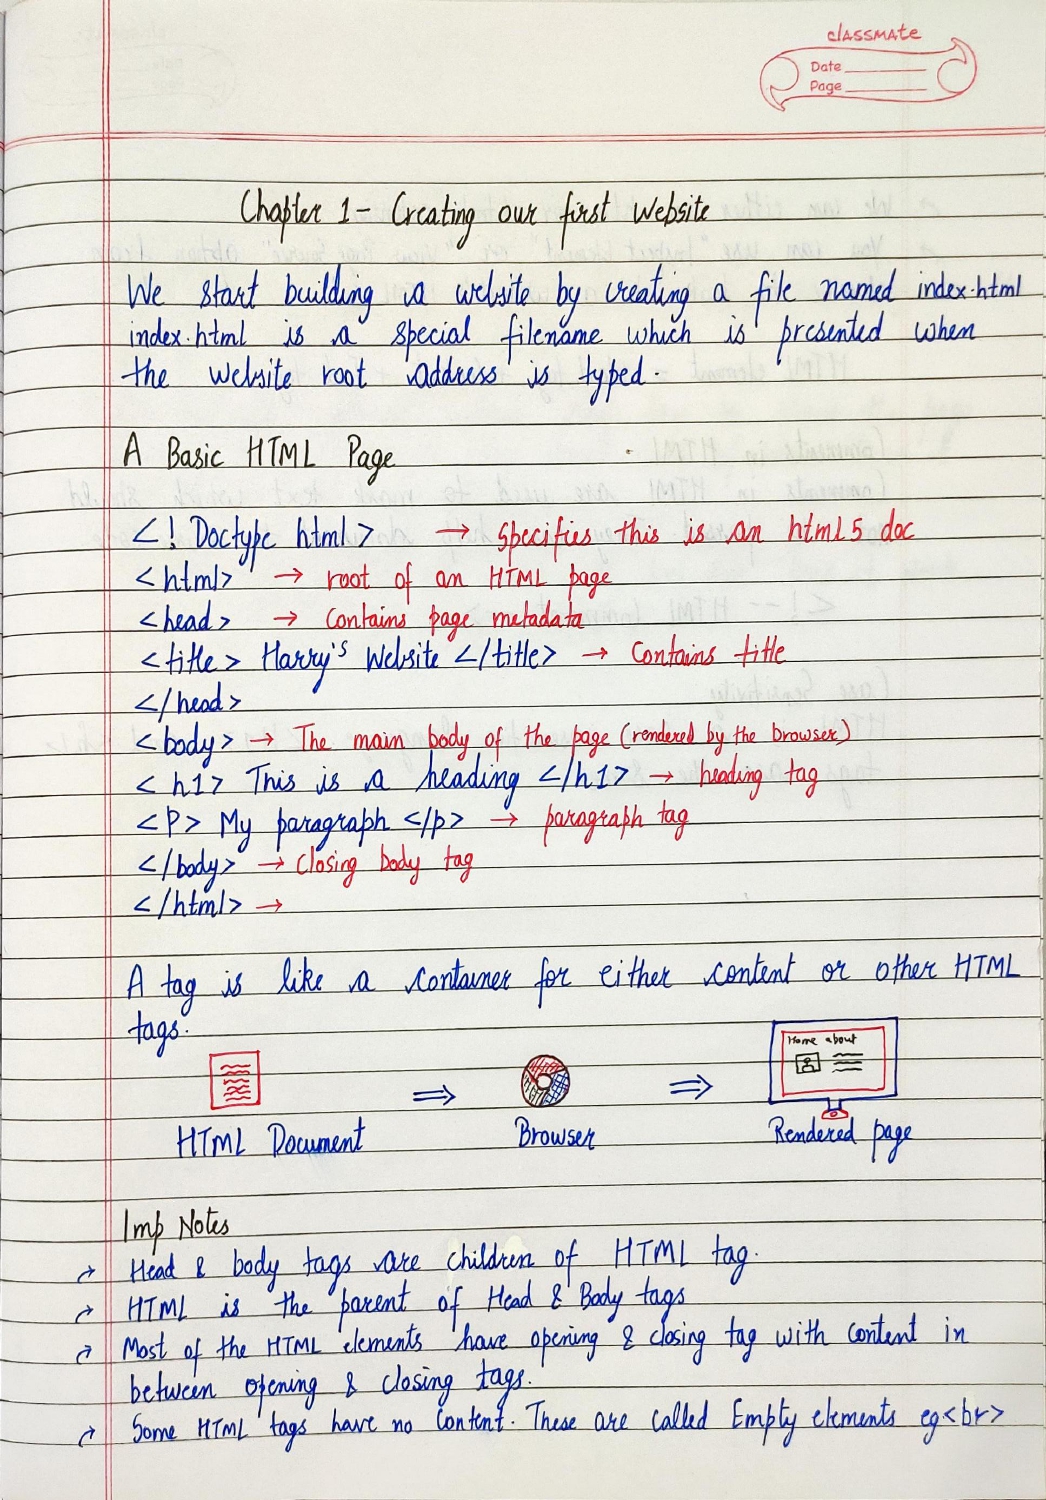 classmate
Date
Page
Chapter 1 - Creating our first Website
We start building a website by creating a file named index.html
index.html is a special filename which is presented when
the website root address is typed.
A Basic HTML Page
<! Doctype html> → Specifies this is an html5 doc
<html> → root of an HTML page
<head> → Contains page metadata
<title> Harry's Website </title> → Contains title
</head>
<body> → The main body of the page (rendered by the browser)
<h1> This is a heading </h1> → heading tag
<P> My paragraph </p> → paragraph tag
</body> → closing body tag
</html> →
A tag is like a container for either content or other HTML
tags.
Home about
HTML Document ⇒ Browser ⇒ Rendered page
Imp Notes
→ Head & body tags are children of HTML tag.
→ HTML is the parent of Head & Body tags
→ Most of the HTML elements have opening & closing tag with content in
between opening & closing tags.
→ Some HTML tags have no content. These are called Empty elements eg <br>